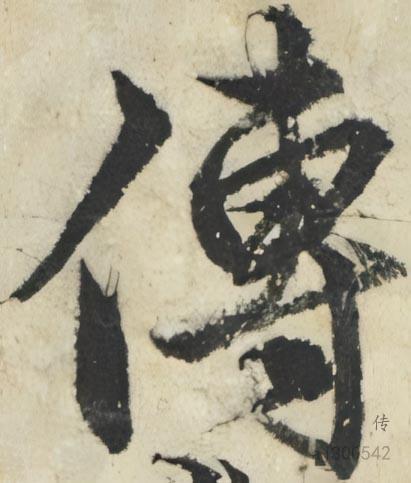 傳
传
1300542